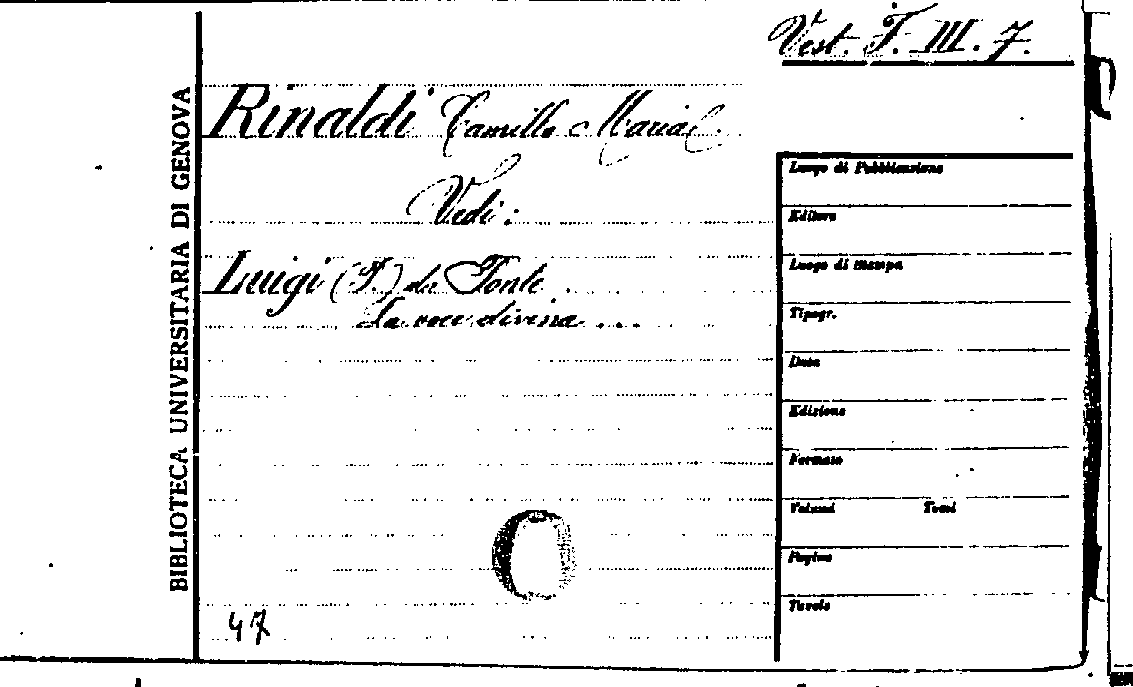 Vest. F. III. 7.
BIBLIOTECA UNIVERSITARIA DI GENOVA
Rinaldi Camillo Maria
Vedi:
Luigi (F.) da Fonte
La voce divina ...
47
Luogo di Pubblicazione
Editore
Luogo di stampa
Tipogr.
Data
Edizione
Formato
Volumi Tomi
Pagine
Tavole